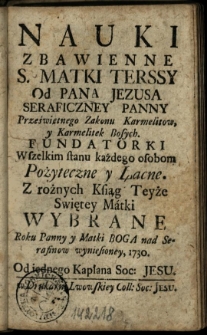 NAUKI
ZBAWIENNE
S. MATKI TERSSY
Od PANA JEZUSA
SERAFICZNEY PANNY
Przeświętnego Zakonu Karmelitow,
y Karmelitek Bosych.
FUNDATORKI
Wszelkim stanu każdego osobom
Pożyteczne y Łacne.
Z rożnych Ksiąg Teyże
Swiętey Mátki
WYBRANE
Roku Panny y Matki BOGA nad Se-
rafinow wyniesioney, 1730.
Od iednego Kapłana Soc: JESU.
w Drukarni Lwowskiey Coll: Soc: JESU.
142218